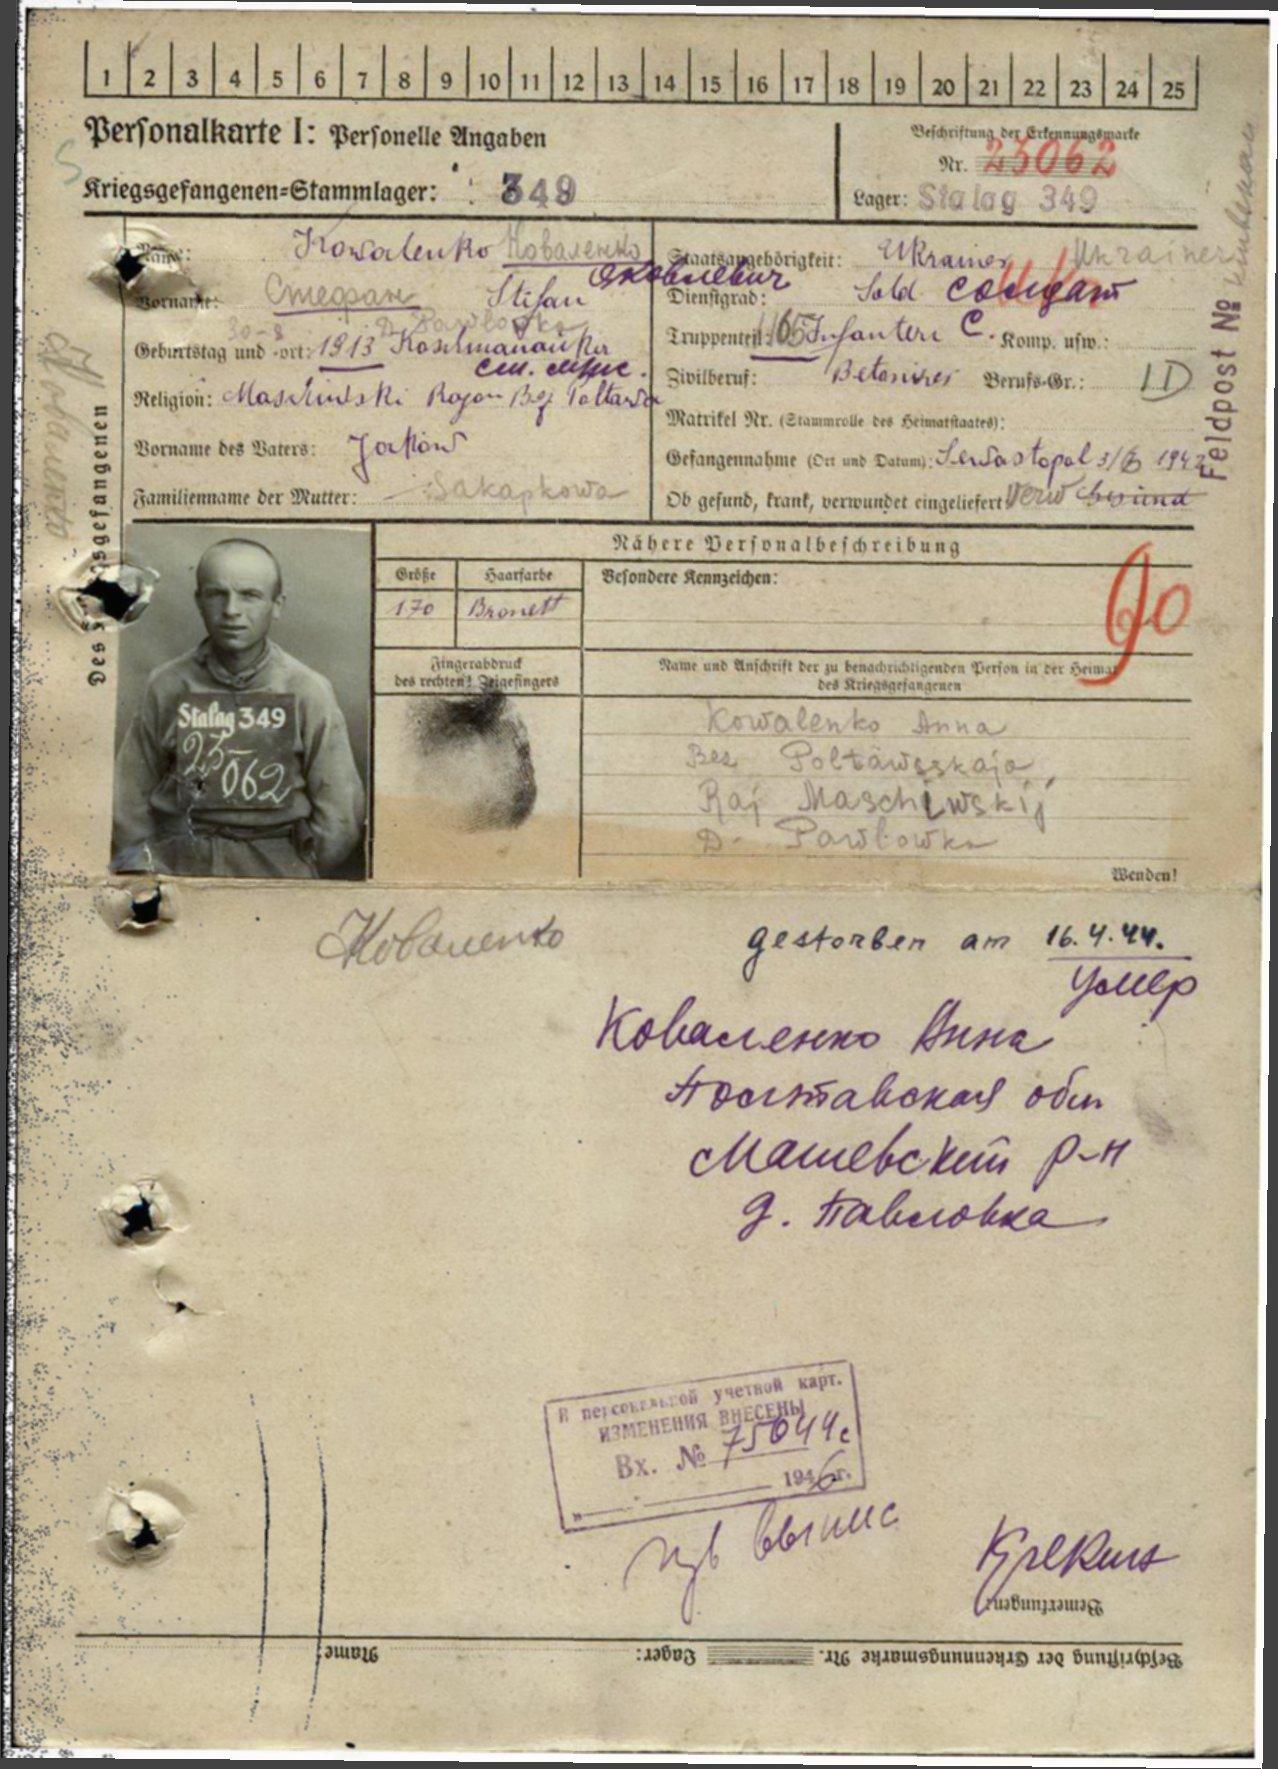 1 2 3 4 5 6 7 8 9 10 11 12 13 14 15 16 17 18 19 20 21 22 23 24 25
Personalkarte I: Personelle Angaben
Beschriftung der Erkennungsmarke
Nr. 25062
Kriegsgefangenen=Stammlager: 349
Lager: Stalag 349
Name: Kowalenko Коваленко
Staatsangehörigkeit: Ukrainer Ukrainer
Vorname: Стефан Stefan Яковлевич
Dienstgrad: Sold солдат
30-8 D. Pawlowka
Geburtstag und -ort: 1913
Truppenteil: Infanteri C. Komp. usw.:
см.
Religion: Maschiwski Rajon Bez Poltawa
Zivilberuf: Berufs-Gr.: ID
Matrikel Nr. (Stammrolle des Heimatstaates):
Vorname des Vaters: Jakow
Gefangennahme (Ort und Datum): Sewastopol 1942
Familienname der Mutter: Sakapkowa
Ob gesund, krank, verwundet eingeliefert: verw Gesund
Feldpost №
Коваленко
Des Kriegsgefangenen
Nähere Personalbeschreibung
Größe Haarfarbe Besondere Kennzeichen:
170 Bronett
90
Fingerabdruck
des rechten! Zeigefingers
Name und Anschrift der zu benachrichtigenden Person in der Heimat
des Kriegsgefangenen
Stalag 349
25-
062
Kowalenko Anna
Bez Poltawsskaja
Raj Maschiwskij
D- Pawlowka
Wenden!
Коваленко
gestorben am 16.4.44.
умер
Коваленко Анна
Полтавская обл
Машевский р-н
д. Павловка
В персональной учетной карт.
ИЗМЕНЕНИЯ ВНЕСЕНЫ
Вх. № 75044с
" 1946г.
Bemerkungen:
Beschriftung der Erkennungsmarke Nr. Lager: Name: